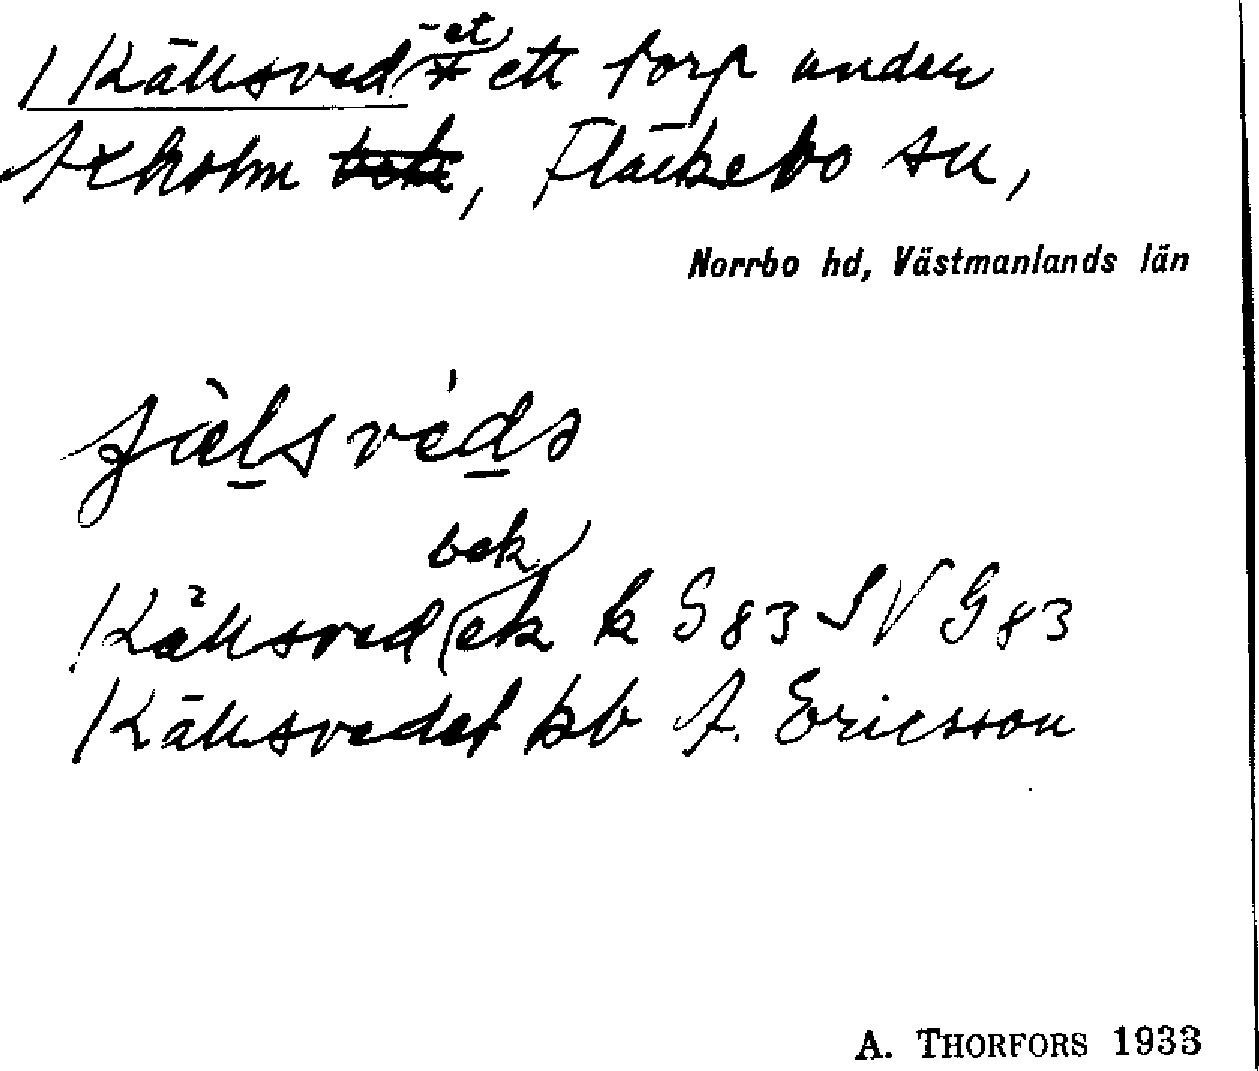 Källsved -et ett torp under
Axholm, Fläckebo sn,
Norrbo hd, Västmanlands län
bek
Källsved ek k G83 SV G83
Källsvedet hb A. Ericsson
A. THORFORS 1933